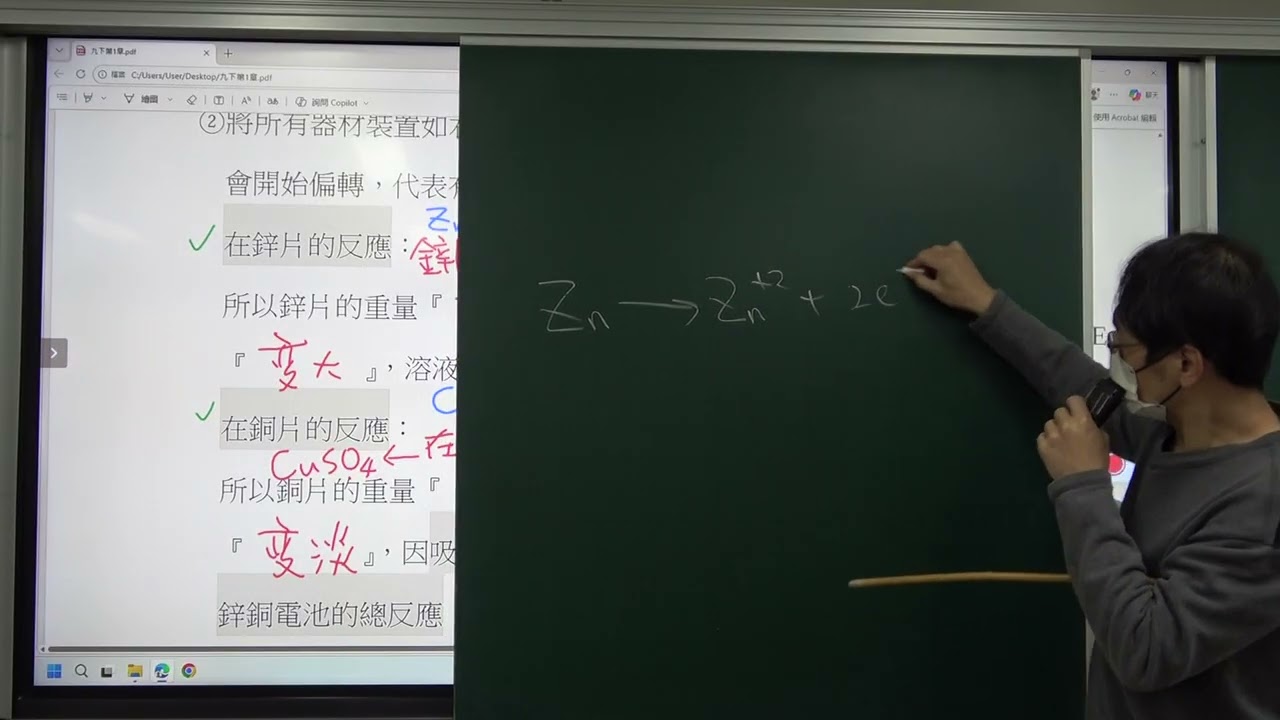 九下第1章.pdf
檔案 C:/Users/User/Desktop/九下第1章.pdf
繪圖 詢問 Copilot
聊天
使用 Acrobat 編輯
②將所有器材裝置如
會開始偏轉，代表
Zn
✓ 在鋅片的反應：鋅
所以鋅片的重量『
『 变大 』，溶液
✓ 在銅片的反應：
CuSO4 ← 在
所以銅片的重量『
『 变淡 』，因吸
鋅銅電池的總反應
Zn → Zn+2 + 2e